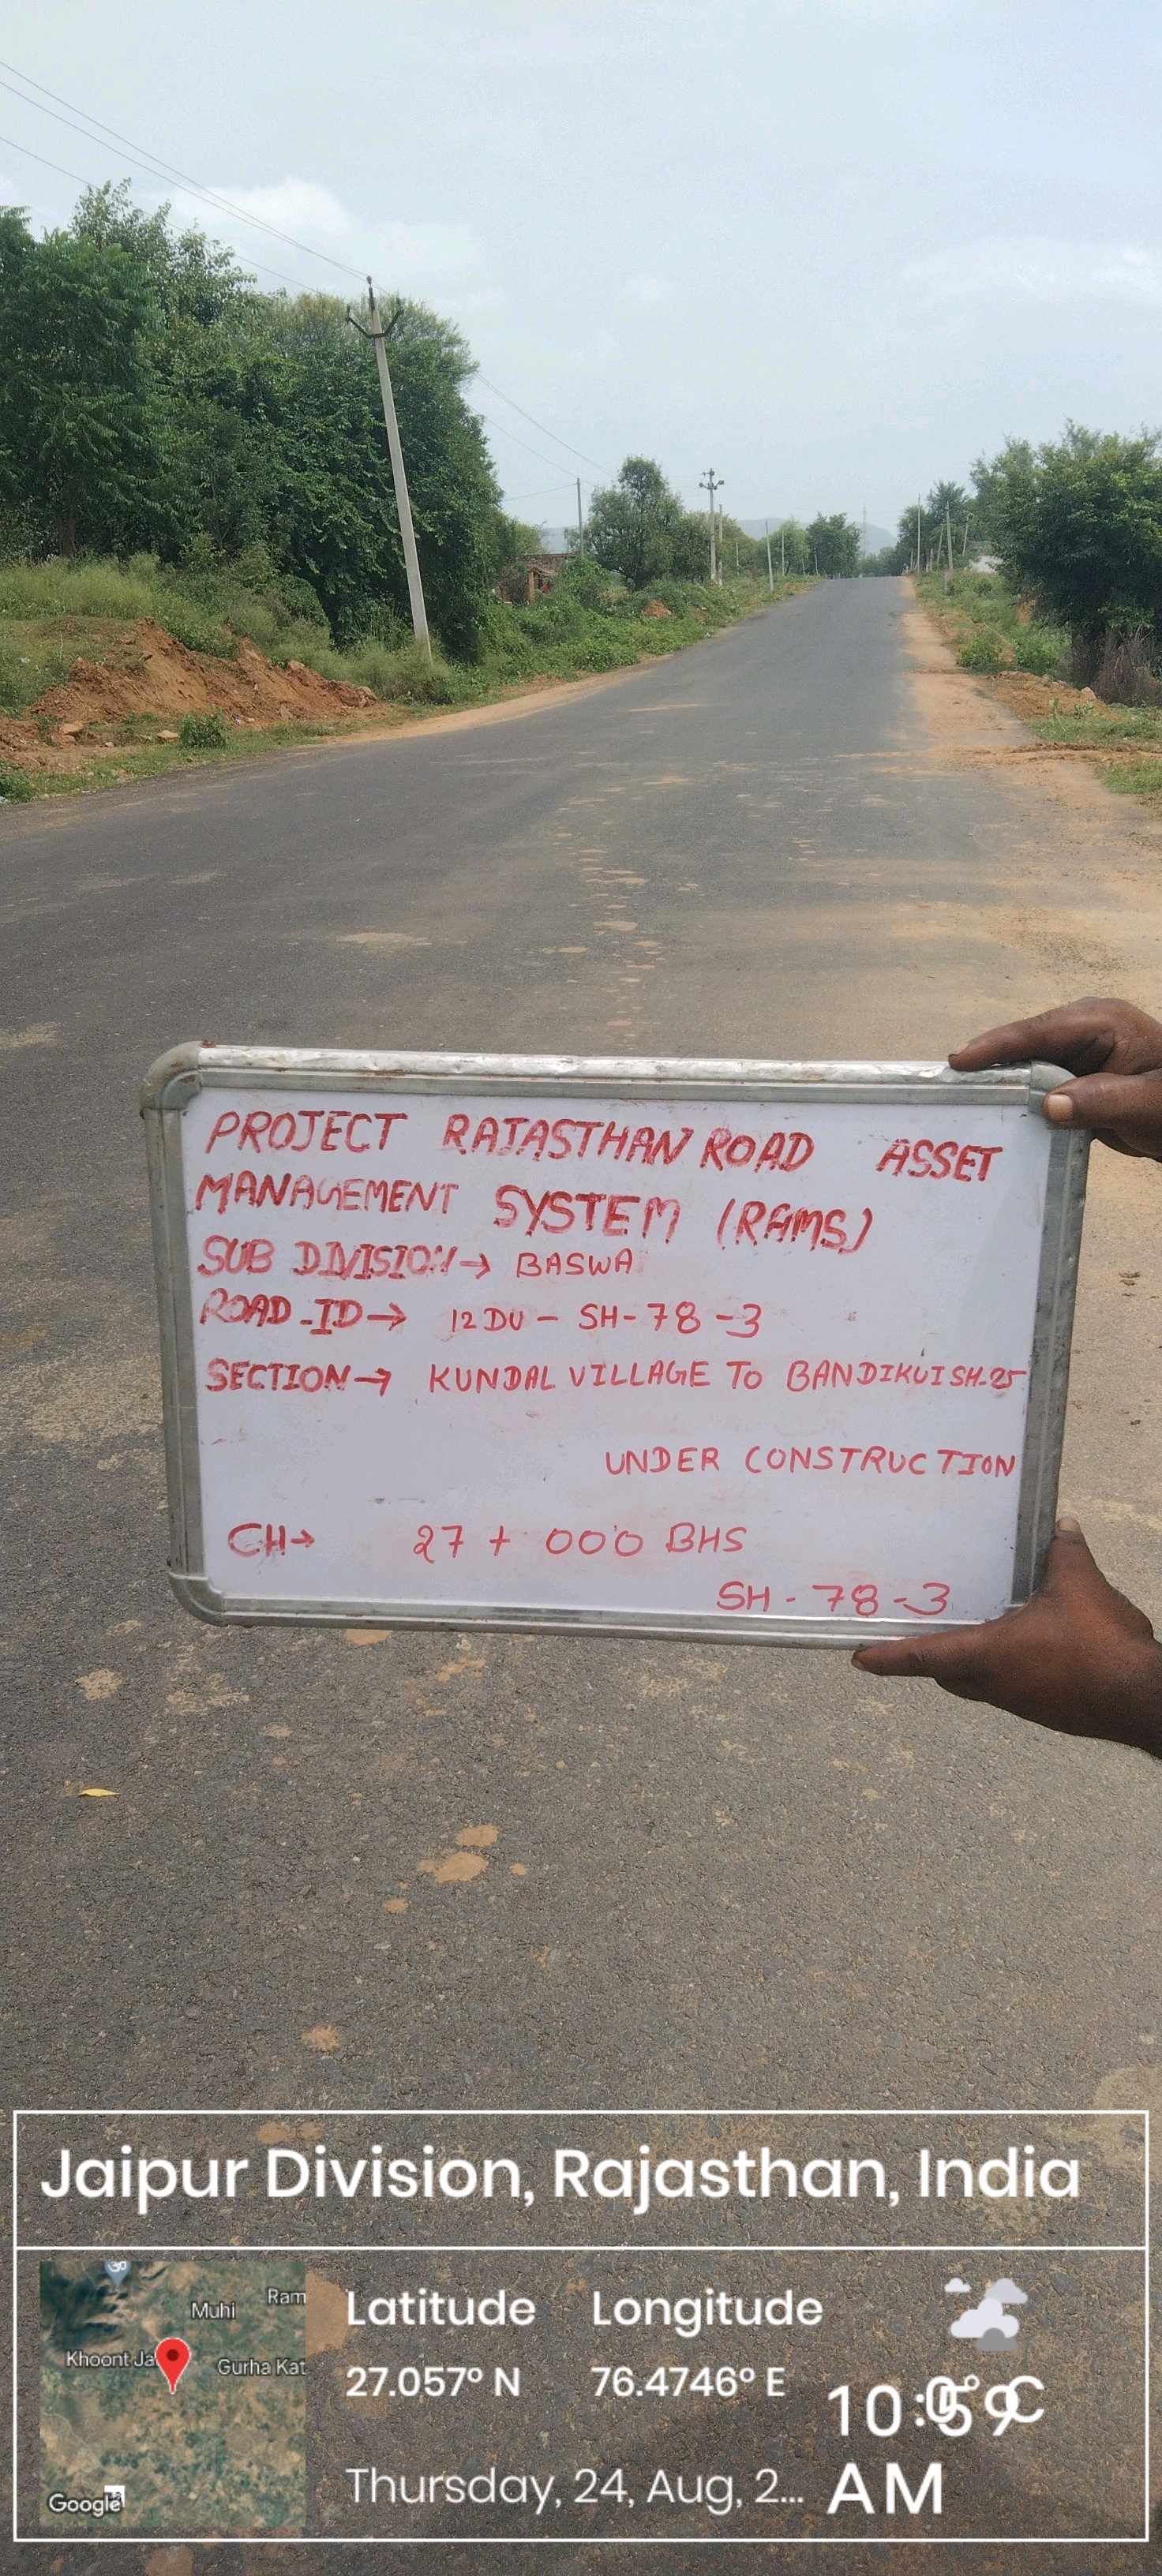 PROJECT RAJASTHAN ROAD ASSET
MANAGEMENT SYSTEM (RAMS)
SUB DIVISION → BASWA
ROAD-ID → 12DU - SH-78-3
SECTION → KUNDAL VILLAGE TO BANDIKUI SH-25
UNDER CONSTRUCTION
CH → 27 + 000 BHS
SH-78-3
Jaipur Division, Rajasthan, India
Ram
Muhi
Khoont Ja
Gurha Kat
Google
Latitude Longitude
27.057° N 76.4746° E
Thursday, 24, Aug, 2...
AM